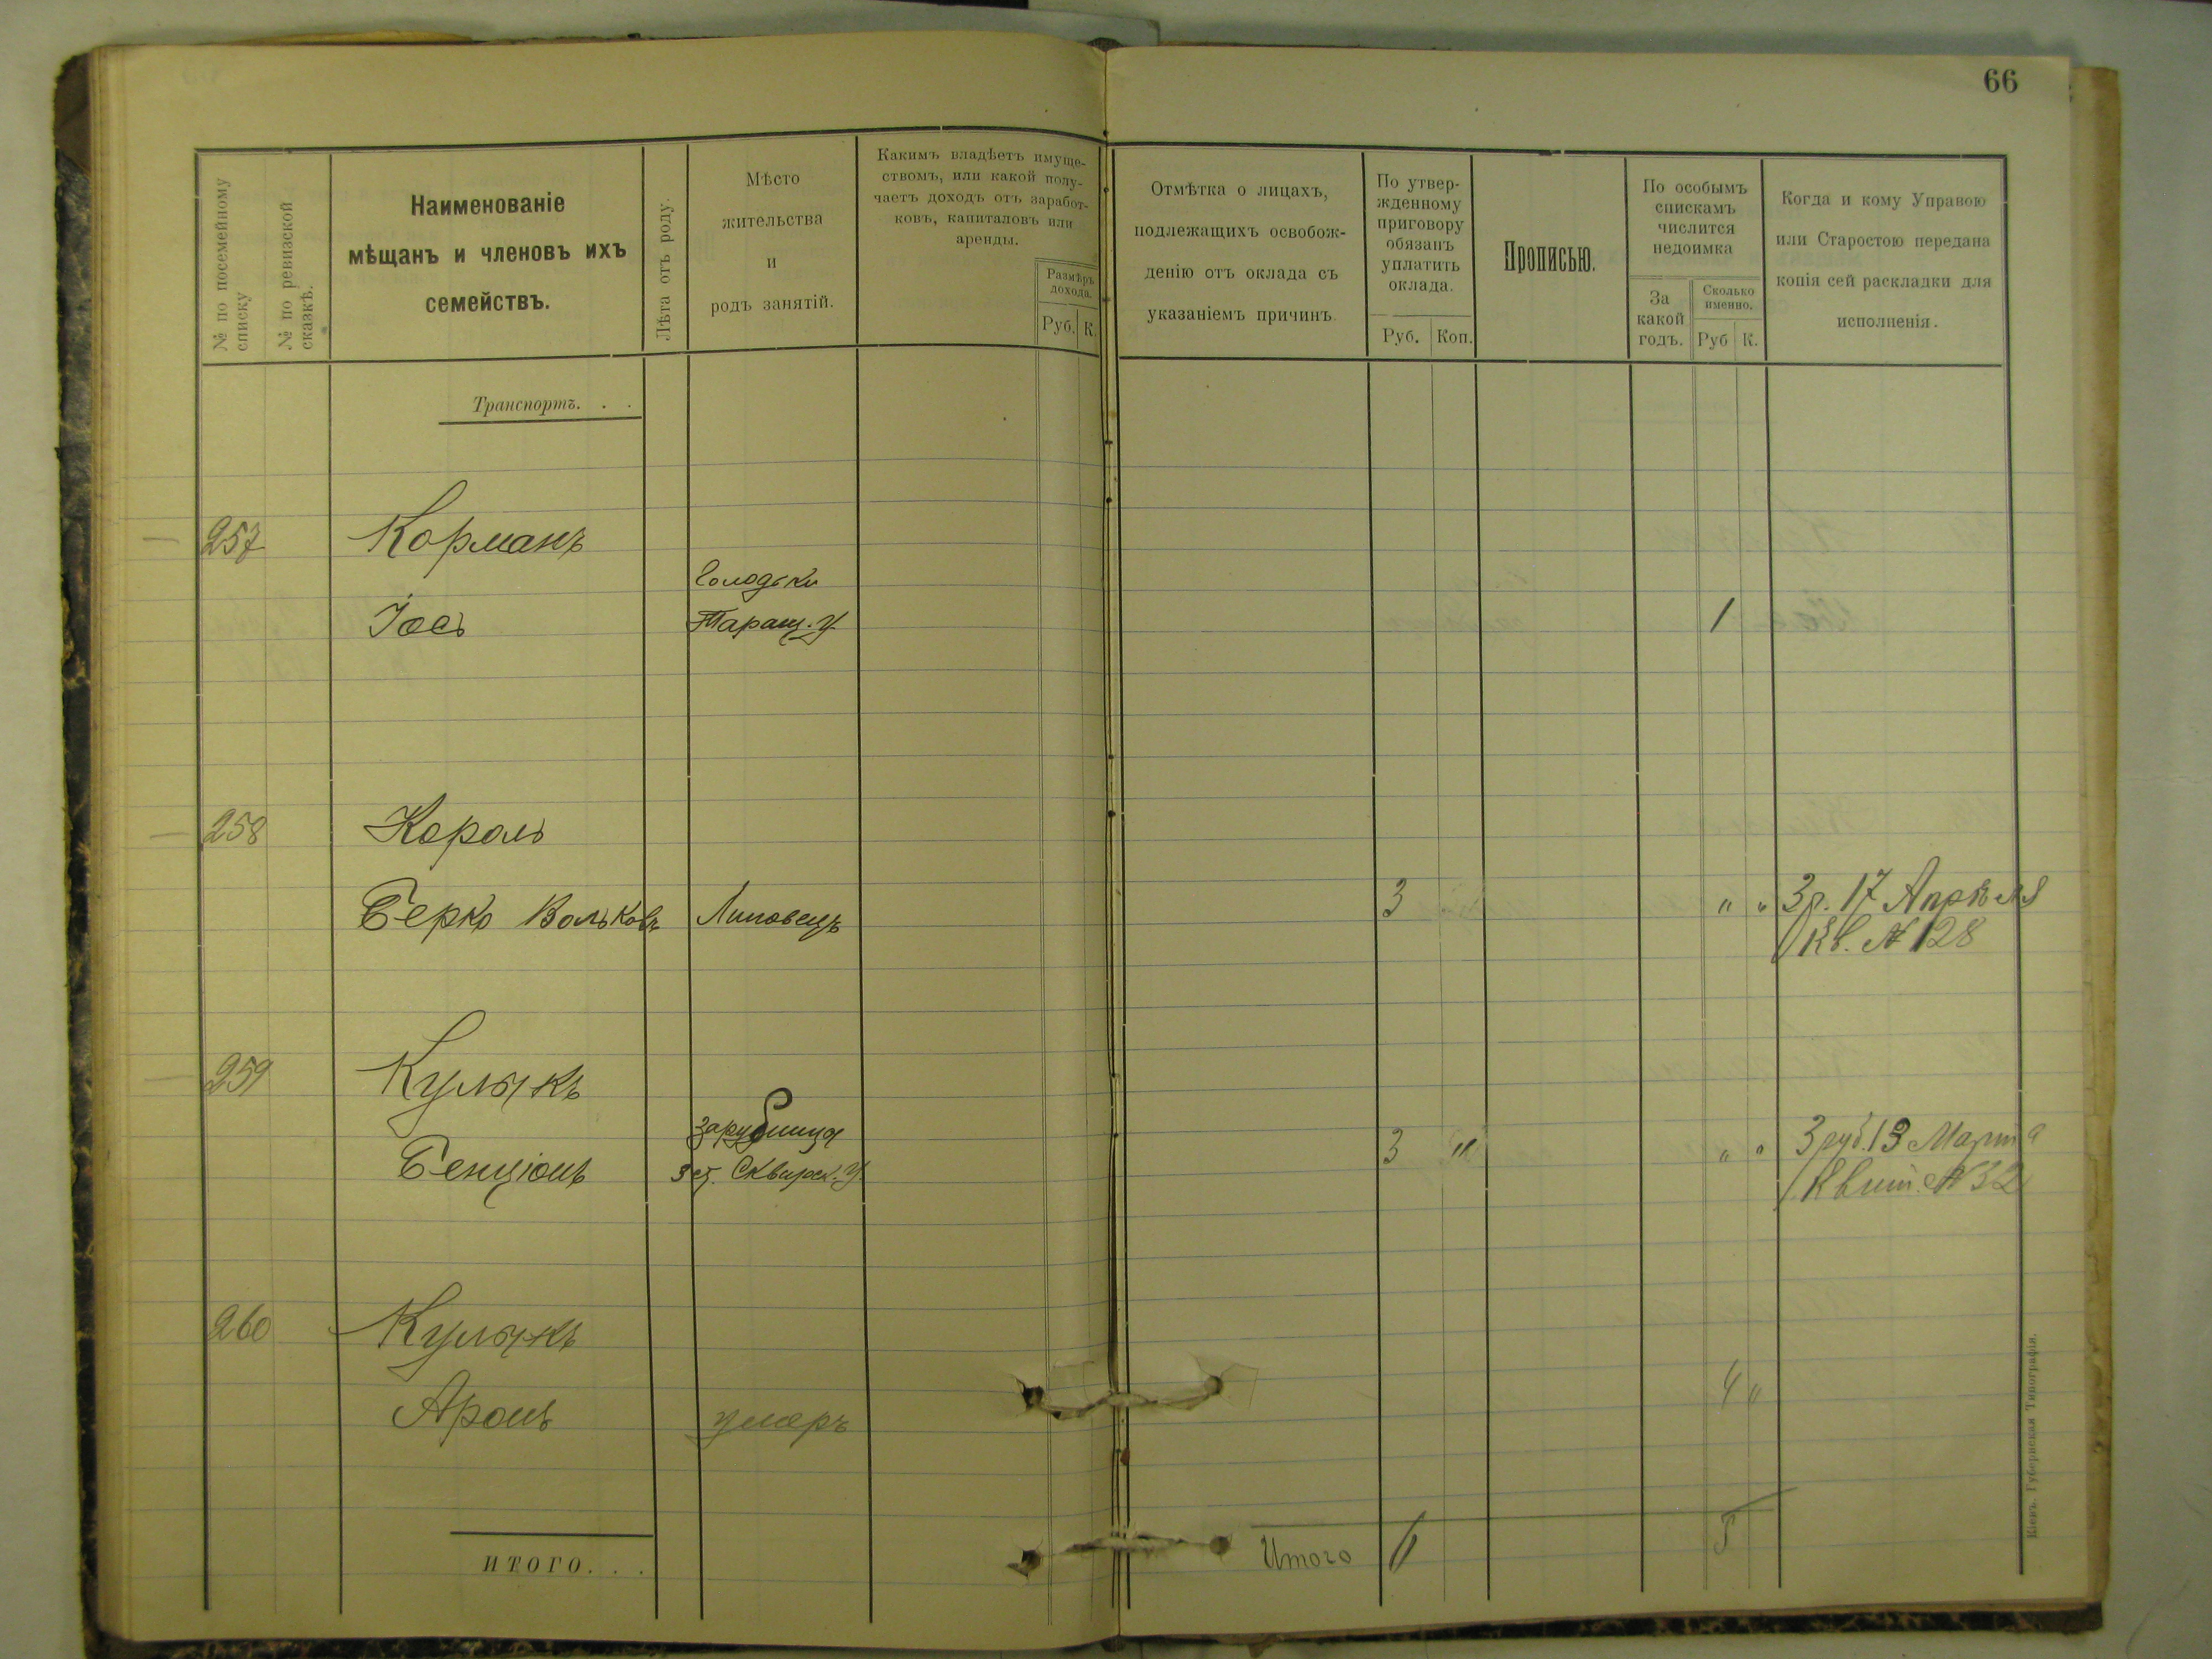 66
№ по посемейному списку
№ по ревизской сказкѣ.
Наименованіе
мѣщанъ и членовъ ихъ
семействъ.
Лѣта отъ роду.
Мѣсто
жительства
и
родъ занятій.
Какимъ владѣетъ имуще-
ствомъ, или какой полу-
чаетъ доходъ отъ заработ-
ковъ, капиталовъ или
аренды.
Размѣръ
дохода.
Руб. К.
Отмѣтка о лицахъ,
подлежащихъ освобож-
денію отъ оклада съ
указаніемъ причинъ.
По утвер-
жденному
приговору
обязанъ
уплатить
оклада.
Руб. Коп.
Прописью.
По особымъ
спискамъ
числится
недоимка
За
какой
годъ.
Сколько
именно.
Руб К.
Когда и кому Управою
или Старостою передана
копія сей раскладки для
исполненія.
Транспортъ. . .
257 Корманъ
Голодьки
Іось Таращ. у 1
258 Король
Берко Вольковъ Липовецъ 3 " " 3 р. 17 Апрѣля
Кв. № 128
259 Кулыкъ
Зарубинца
Бенціонъ Сквирск. у. 3 " " " 3 руб. 13 Марта
Квит. № 32
260 Кулыкъ
4 "
Аронъ умеръ
ИТОГО. . .
Итого 6 5
Кіевъ. Губернская Типографія.